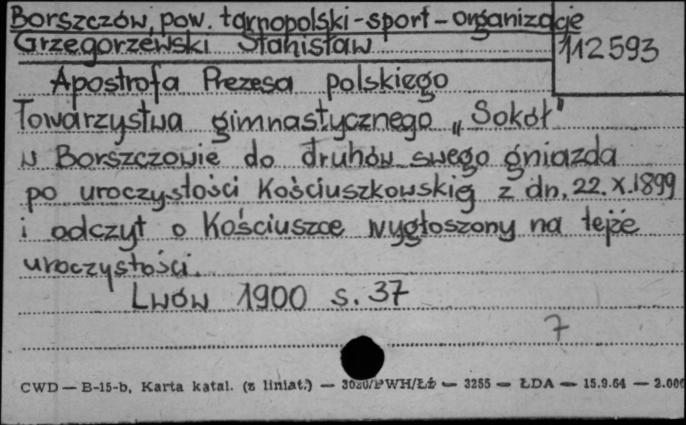 Borszczów, pow. tarnopolski - sport - organizacje
Grzegorzewski Stanisław
112593
Apostrofa Prezesa polskiego
Towarzystwa gimnastycznego „Sokół"
w Borszczowie do druhów swego gniazda
po uroczystości Kościuszkowskiej z dn. 22.X.1899
i odczyt o Kościuszce wygłoszony na tejże
uroczystości.
Lwów 1900 s. 37
7
CWD — B-15-b, Karta katal. (z liniat.) — WH/Łż — 3255 — ŁDA — 15.9.64 — 2.000